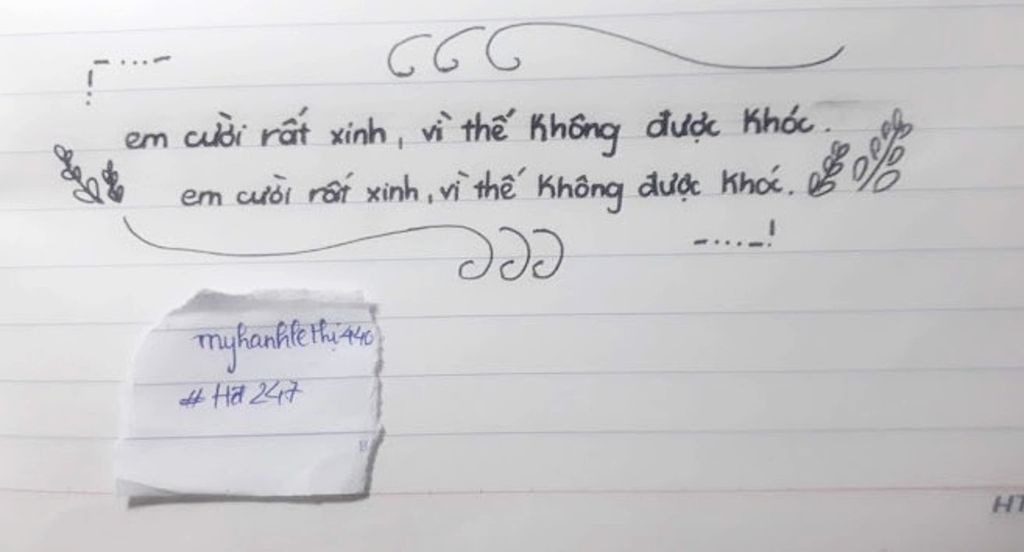 em cười rất xinh, vì thế không được khóc.
em cười rất xinh, vì thế không được khóc.
myhanhlethi440
# Hd 247
HT